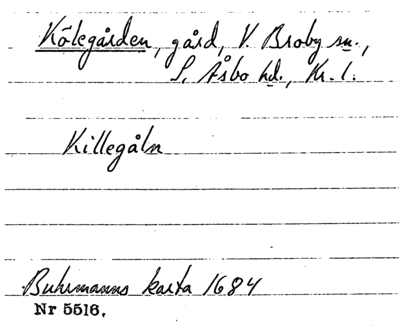 Kölegården, gård, V. Broby sn.,
S. Åsbo hd., Kr. l.
Killegåln
Buhrmanns karta 1684
Nr 5516.